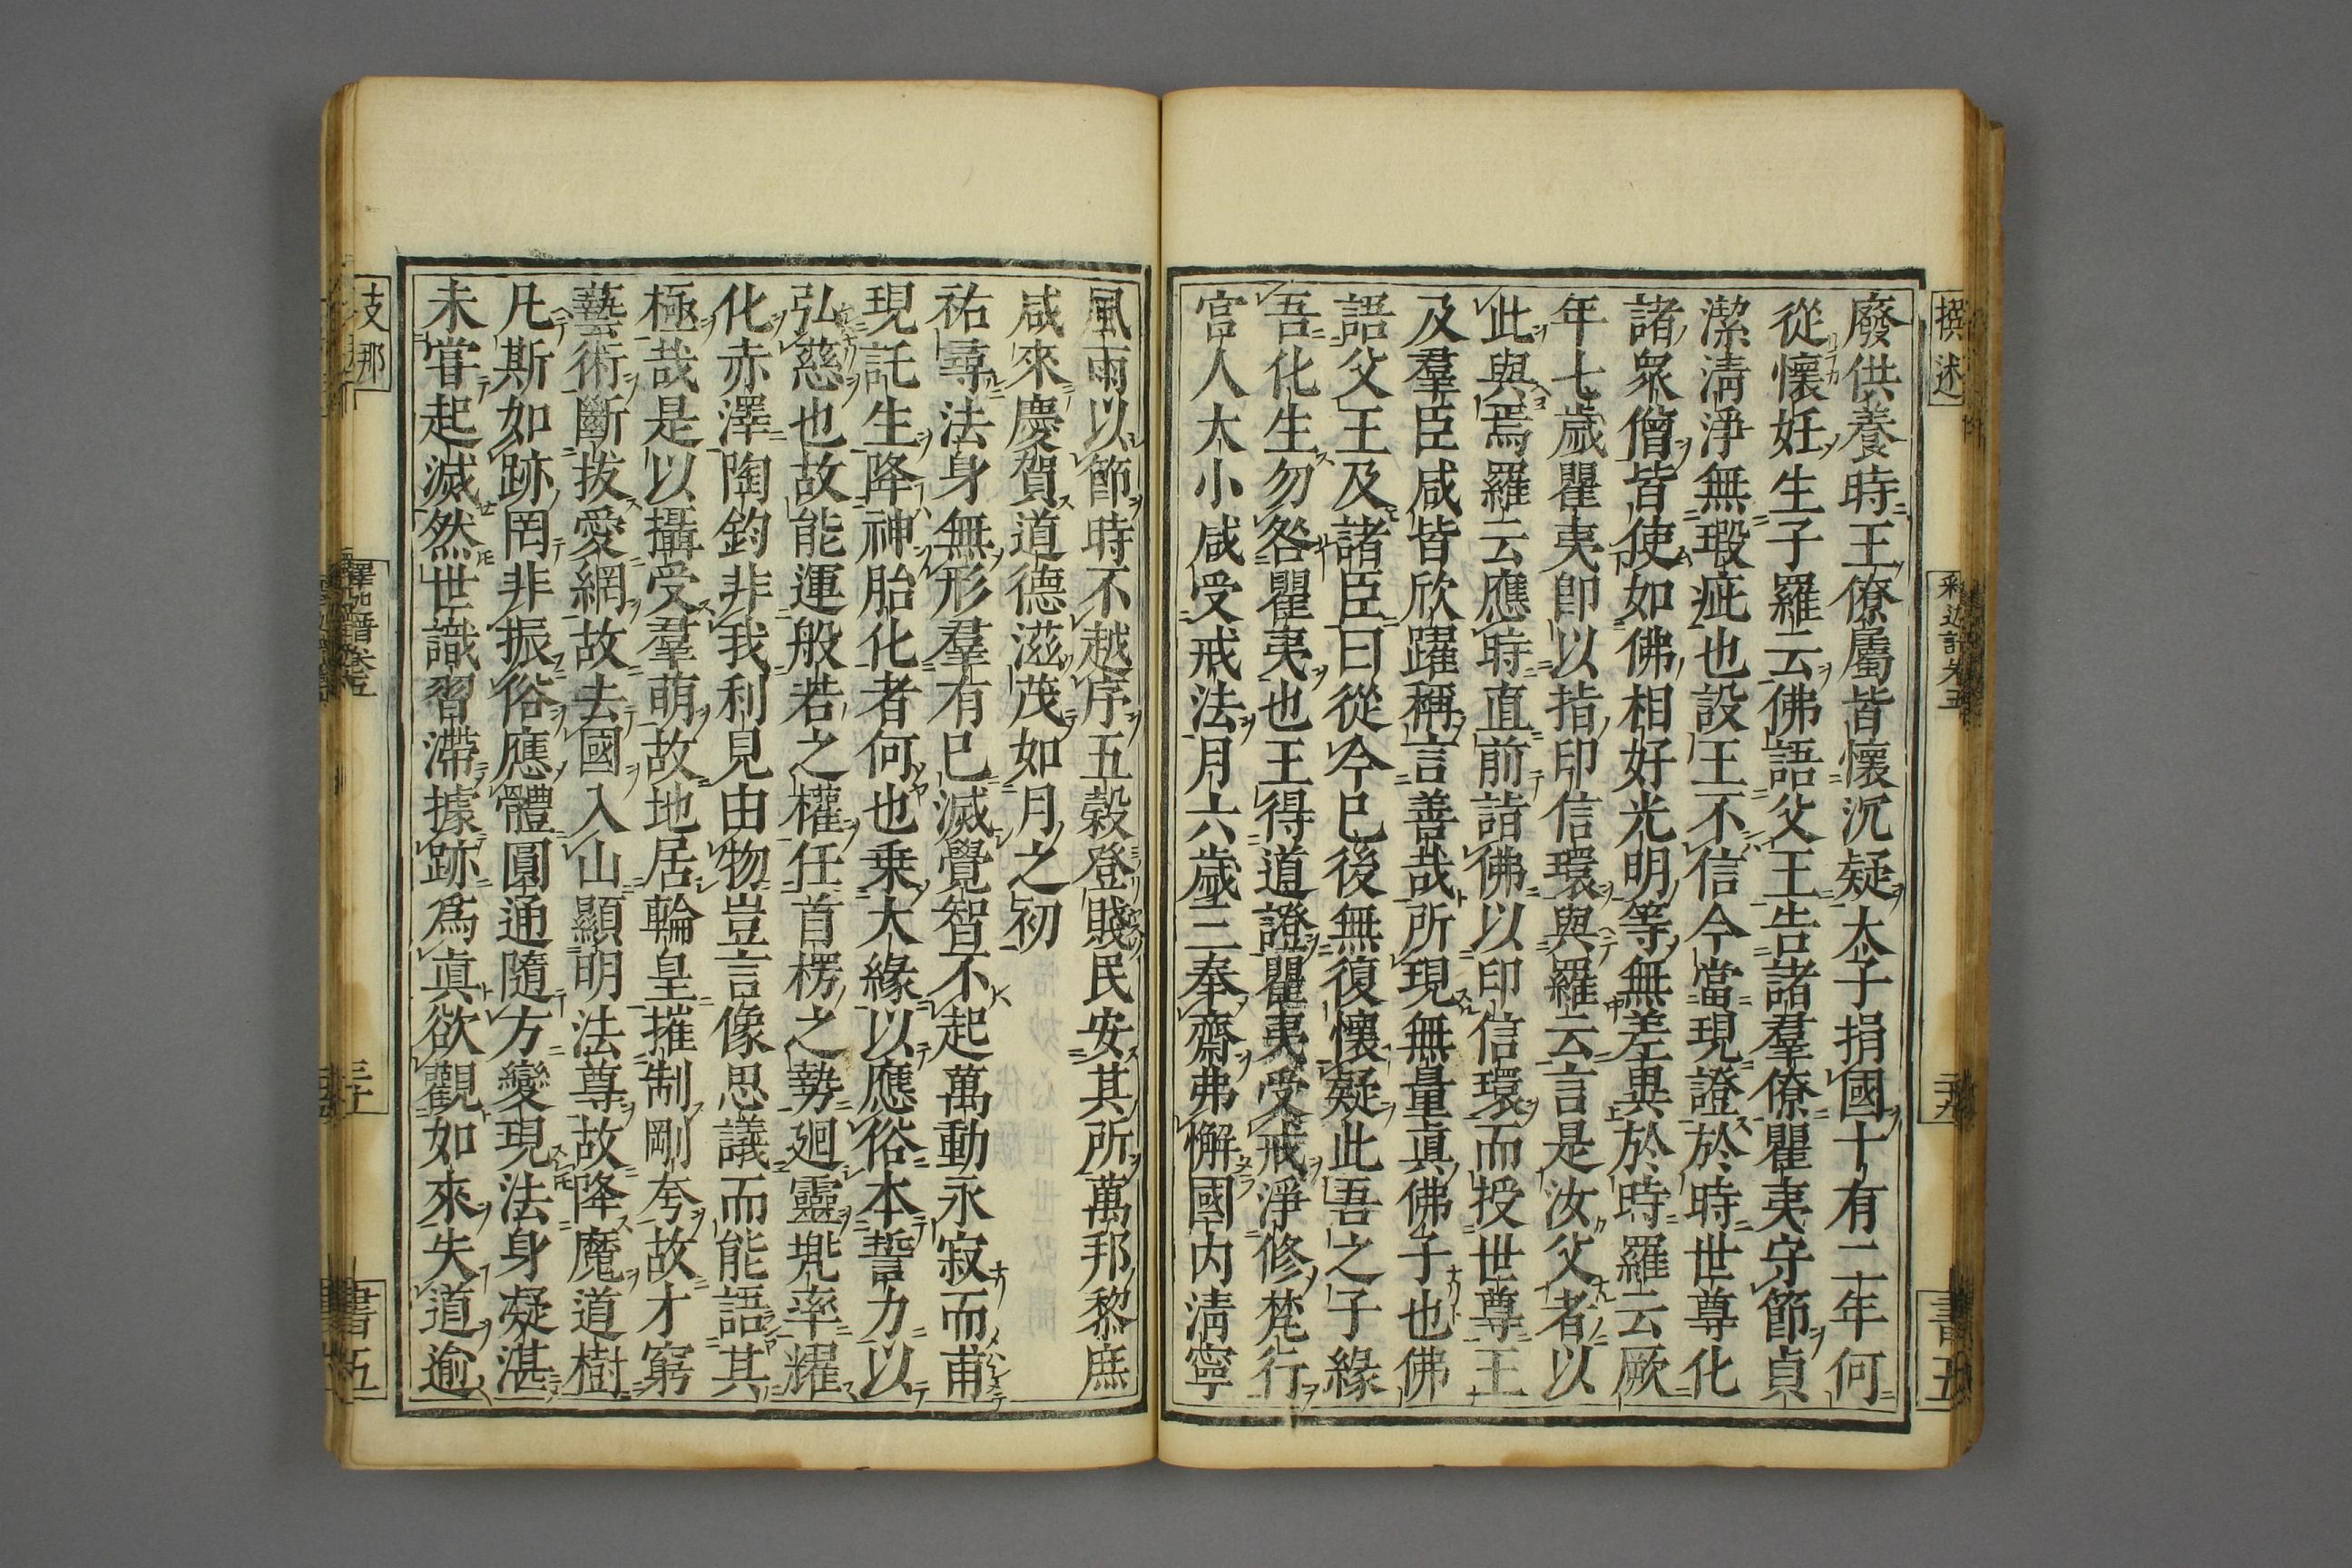 撰述
釋迦譜卷五
二九
書五
廢供養時王僚屬皆懷沉疑太子捐國十有二年何
從懷妊生子羅云佛語父王告諸羣僚瞿夷守節貞
潔清淨無瑕疵也設王不信今當現證於時世尊化
諸衆僧皆使如佛相好光明等無差異於時羅云厥
年七歲瞿夷卽以指印信環與羅云言是汝父者以
此與焉羅云應時直前詣佛以印信環而授世尊王
及羣臣咸皆欣躍稱言善哉所現無量眞佛子也佛
語父王及諸臣曰從今已後無復懷疑此吾之子緣
吾化生勿咎瞿夷也王得道證瞿夷受戒淨修梵行
宮人大小咸受戒法月六歲三奉齋弗懈國內清寧
風雨以節時不越序五穀登賤民安其所萬邦黎庶
咸來慶賀道德滋茂如月之初
祐尋法身無形羣有已滅覺智不起萬動永寂而甫
現託生降神胎化者何也乗大緣以應俗本誓力以
弘慈也故能運般若之權任首楞之勢廻靈兠率耀
化赤澤陶鈞非我利見由物豈言像思議而能語其
極哉是以攝受羣萌故地居輪皇摧制剛夸故才窮
藝術斷拔愛網故去國入山顯明法尊故降魔道樹
凡斯如跡罔非振俗應體圓通隨方變現法身凝湛
未甞起滅然世識習滯據跡爲眞欲觀如來失道逾
支那
釋迦譜卷五
三十
書五